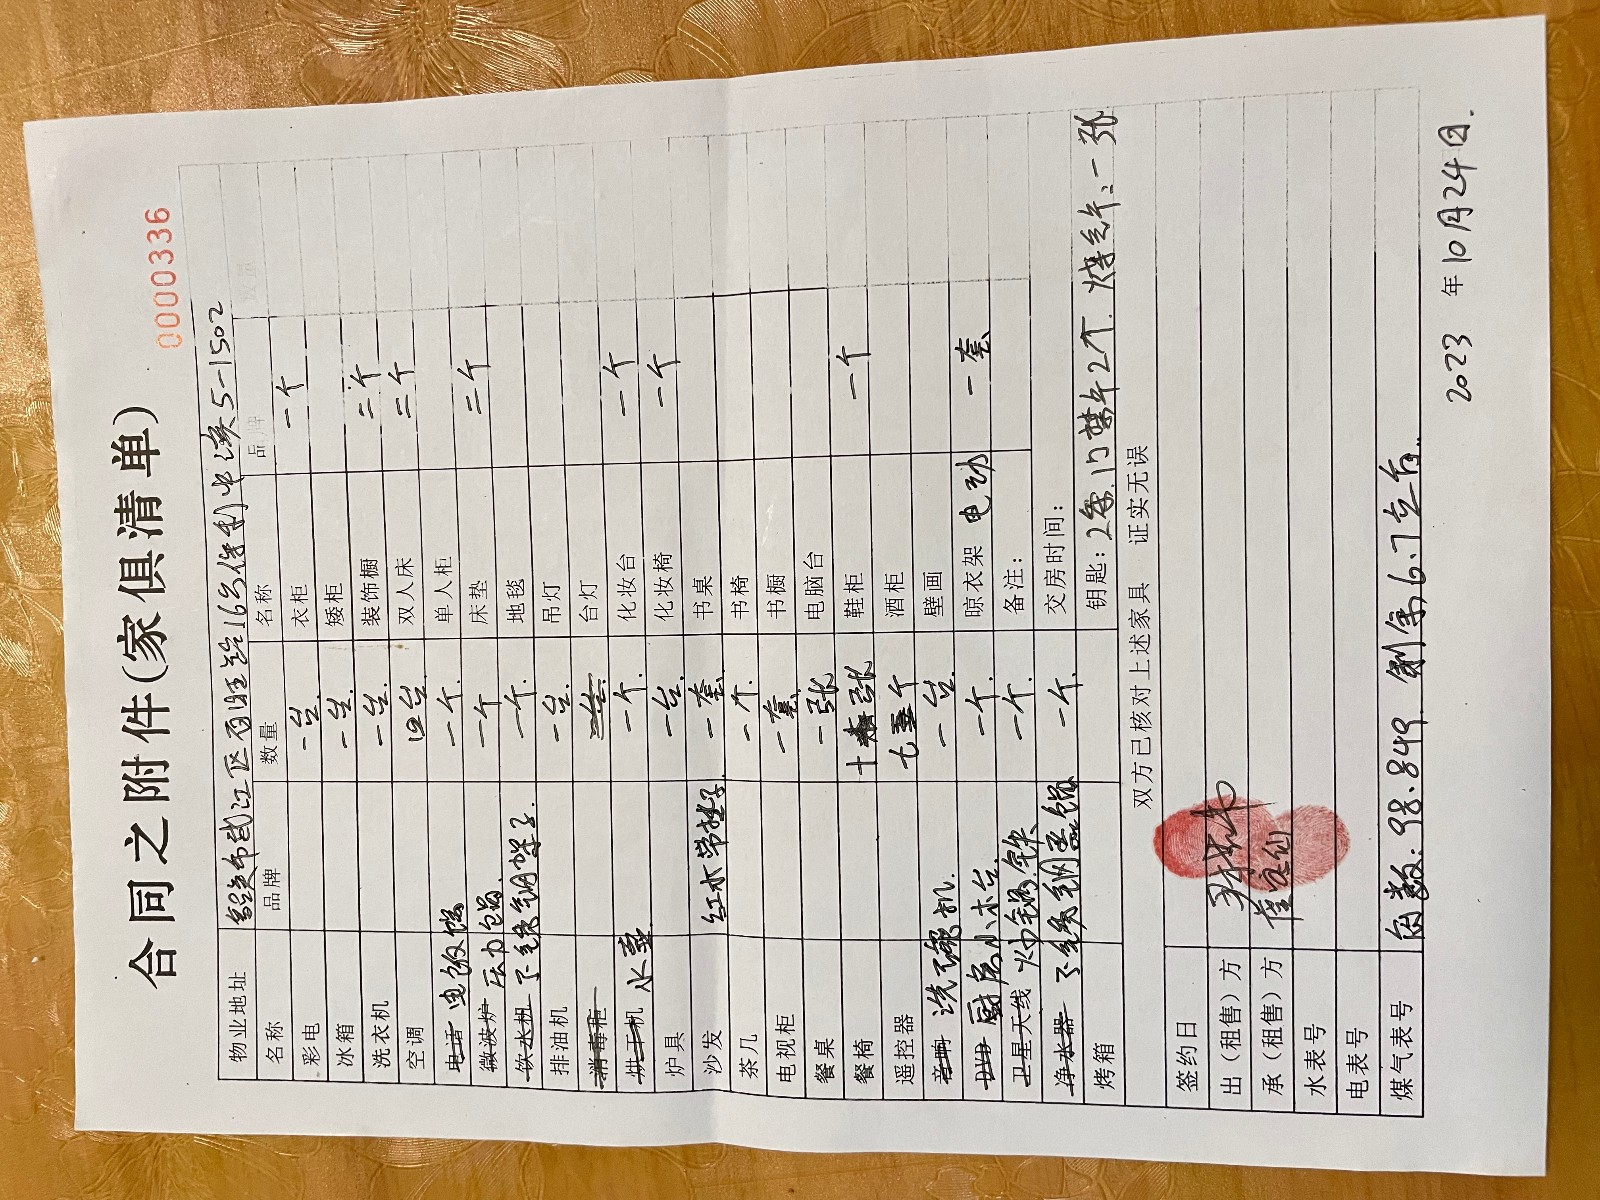 合同之附件(家俱清单)
0000336
物业地址 韶关市武江区百旺路16号保利中溪5-1502
名称 品牌 数量 名称 品牌 数量
彩电 一台 衣柜 一个
冰箱 一台 矮柜
洗衣机 一台 装饰橱 二个
空调 四台 双人床 二个
电话 电饭锅 一个 单人柜
微波炉 压力锅 一个 床垫 二个
饮水机 不锈钢架子 一个 地毯
排油机 一台 吊灯
消毒柜 台灯
烘干机 水壶 一个 化妆台 一个
炉具 一台 化妆椅 一个
沙发 红木带垫子 一套 书桌
茶几 一个 书椅
电视柜 一套 书橱
餐桌 一张 电脑台
餐椅 十张 鞋柜 一个
遥控器 七个 酒柜
音响 洗碗机 一台 壁画
DVD 厨房小木台 一个 晾衣架 电动 一套
卫星天线 炒锅铁 一个 备注:
净水器 不锈钢蒸锅 一个 交房时间:
烤箱 钥匙:2套.门禁卡2个.停车卡:一张
双方已核对上述家具 证实无误
签约日
出(租售)方
承(租售)方
水表号
电表号
煤气表号 底数:98.849.剩余6.7立方.
2023 年10月24日.